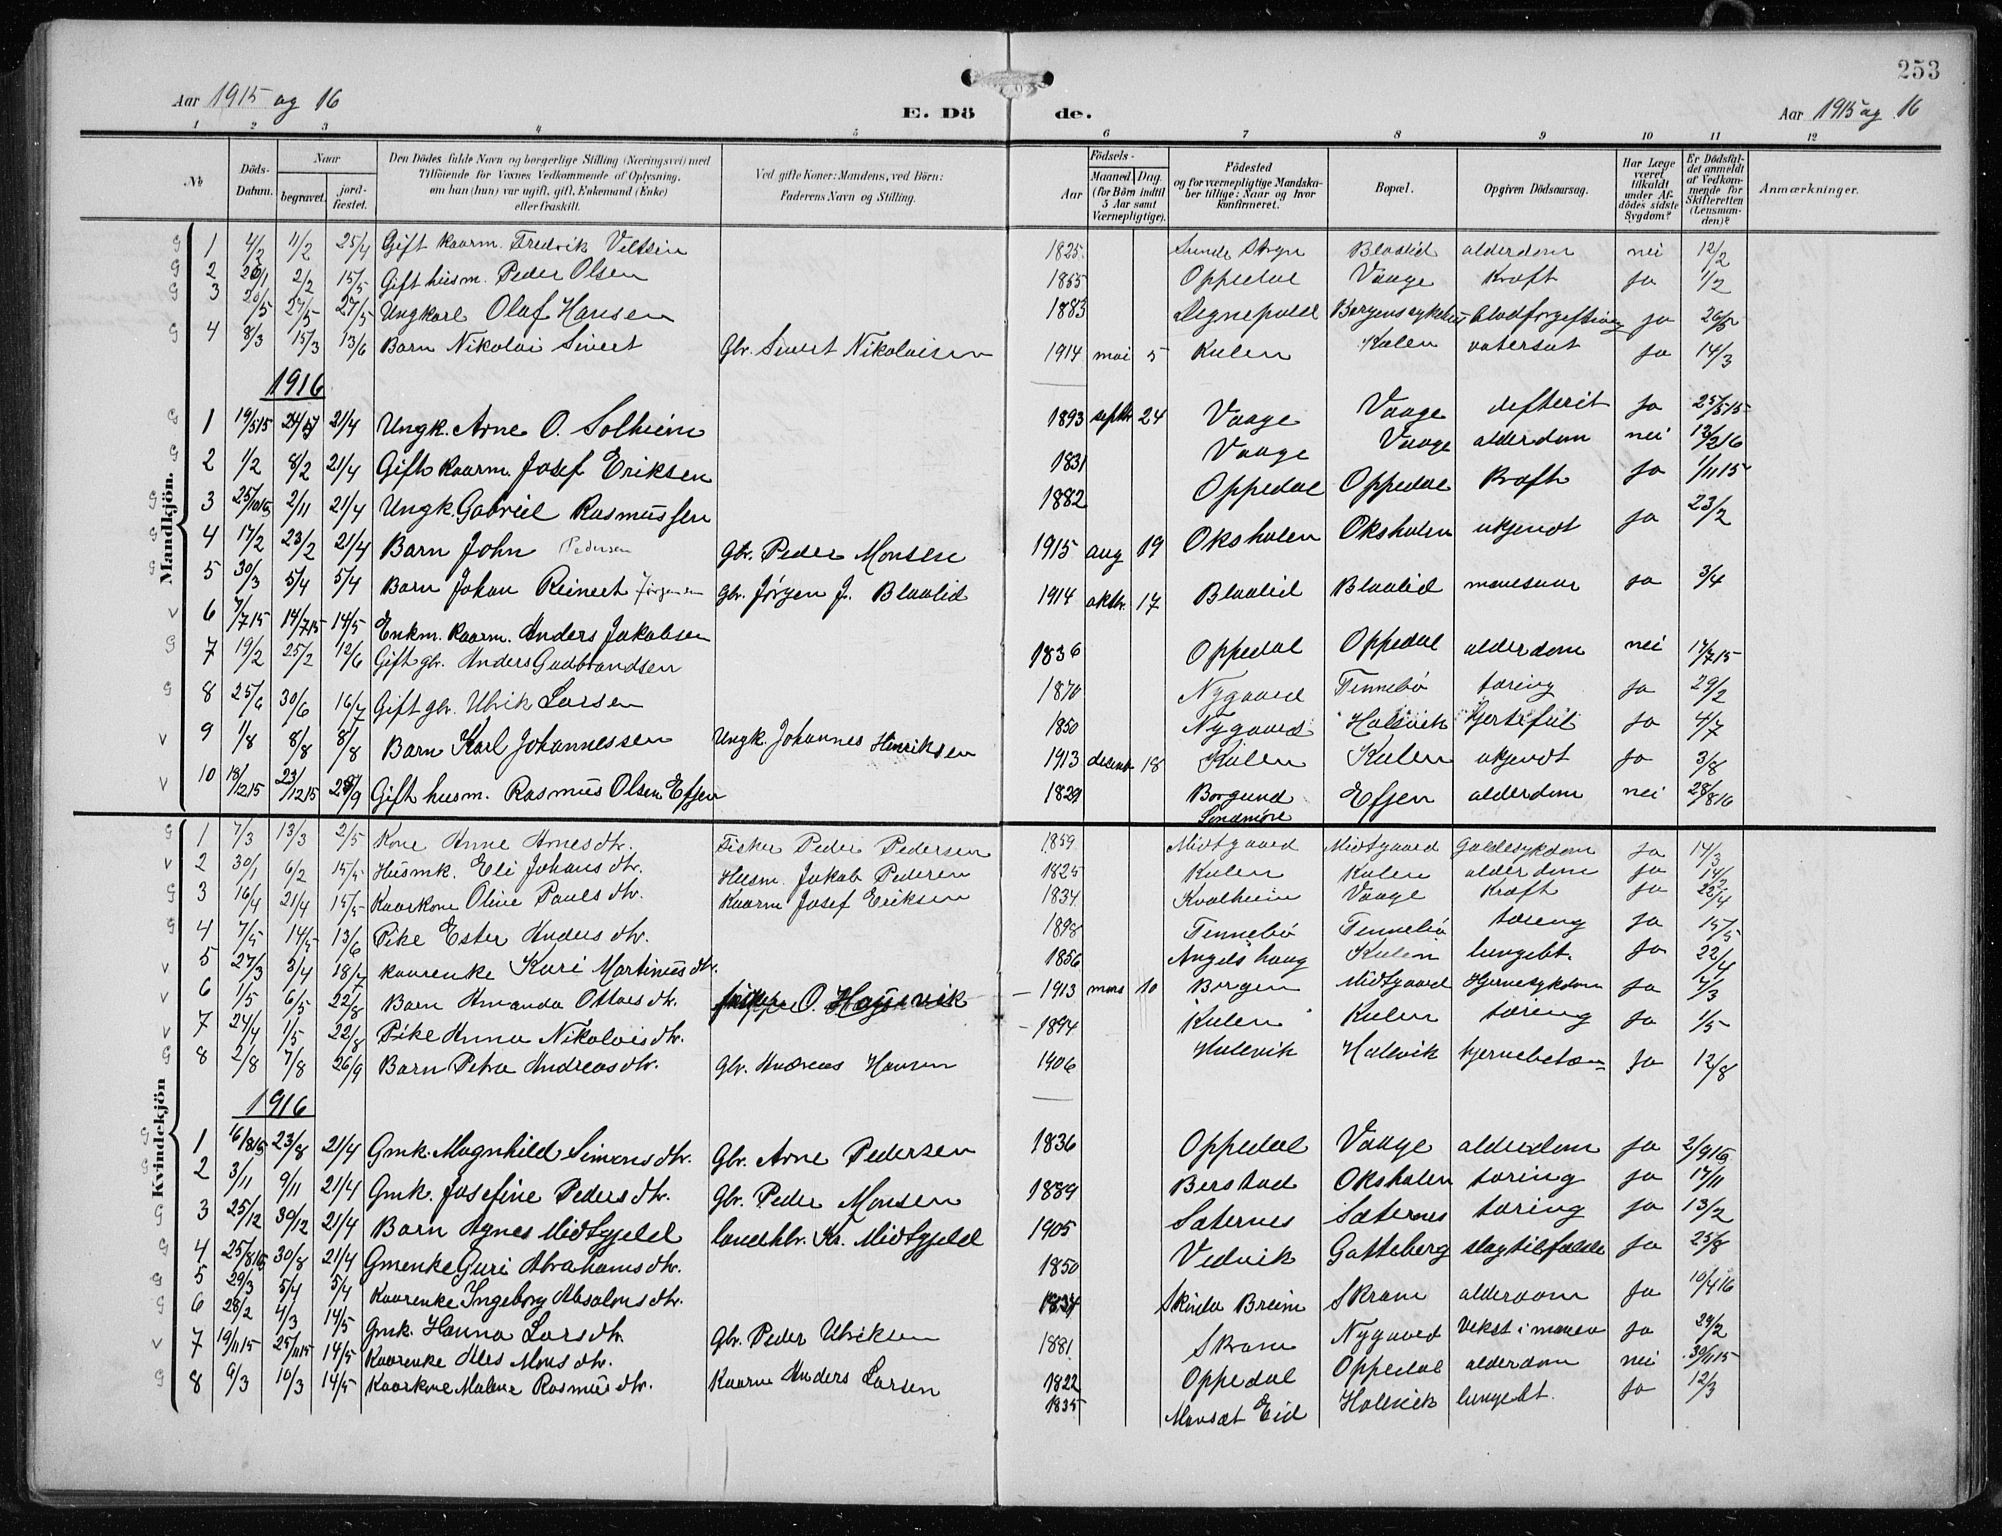 253
Aar 1915 og 16
E. Dö de.
Aar 1915 og 16
1 2 3 4 5 6 7 8 9 10 11 12
No
Döds-Datum.
Naar begravet. jordfæstet.
Den Dödes fulde Navn og borgerlige Stilling (Næringsvei) med Tilföiende for Voxnes Vedkommende af Oplysning, om han (hun) var ugift, gift, Enkemand (Enke) eller fraskilt.
Ved gifte Koner: Mandens, ved Börn: Faderens Navn og Stilling.
Födsels-
Aar
Maaned. Dag. (for Börn indtil 5 Aar samt Værnepligtige).
Födested og for værnepligtige Mandskaber tillige: Naar og hvor konfirmeret.
Bopæl.
Opgiven Dödsaarsag.
Har Læge været tilkaldt under Afdödes sidste Sygdom?
Er Dödsfaldet anmeldt af Vedkommende for Skifteretten (Lensmanden)?
Anmærkninger.
Mandkjön.
1 4/2 11/2 25/4 Gift kaarm. Fredrik 1825 Blaalid alderdom nei 12/2
2 2/2 15/5 Gift husm. Peder Olsen 1855 Oppedal Vaage Kræft ja 1/2
3 20/5 27/5 27/5 Ungkarl Olaf Hansen 1883 Degnepold Bergens sykehus blodforgiftning ja 26/5
4 8/3 15/3 13/6 Barn Nikolai Sivert Gbr. Sivert Nikolaisen 1914 mai 5 Kulen Kulen vatersut ja 14/3
1916
1 19/5 15 21/4 Ungk. Arne O. Solheim 1893 septbr 24 Vaage Vaage defterit ja 25/5 15
2 1/2 8/2 21/4 Gift kaarm. Josef Eriksen 1831 Vaage Vaage alderdom nei 12/2 16
3 25/10 15 2/11 21/4 Ungk. Gabriel Rasmussen 1882 Oppedal Oppedal Kræft ja 1/11 15
4 17/2 23/2 21/4 Barn John Pedersen Gbr. Peder Monsen 1915 aug 19 Oksholen Oksholen ukjendt ja 23/2
5 30/3 5/4 5/4 Barn Johan Reinert Jørgensen gbr. Jørgen J. Blaalid 1914 oktbr. 17 Blaalid Blaalid mavesaar ja 3/4
6 7/7 15 14/7 15 14/5 Enkm. kaarm. Anders Jakobsen 1836 Oppedal Oppedal alderdom nei 17/7 15
7 19/2 25/2 12/6 Gift gbr. Anders Gudbrandsen 1870 Nygaard Tennebø tæring ja 29/2
8 25/6 30/6 16/7 Gift gbr. Ulrik Larsen 1850 Nygaard Halsvik hjertefeil ja 4/7
9 1/8 8/8 8/8 Barn Karl Johannessen Ungk. Johannes Henriksen 1913 decemb 18 Kulen Kulen ukjendt ja 3/8
10 18/12 15 23/12 15 Gift husm. Rasmus Olsen Efjen 1829 Borgund Søndmøre Efjen alderdom nei 28/8 16
Kvindekjön
1 7/3 13/3 2/5 Kone Anne Arnesdtr. Fisker Peder Pedersen 1859 Midtgaard Midtgaard Galdesykdom ja 14/3
2 30/1 6/2 15/5 Husmk. Eli Johansdtr. Husm. Jakob Pedersen 1825 Kulen Kulen alderdom ja
3 16/4 21/4 15/5 Kaarkone Oline Paulsdtr. Kaarm Josef Eriksen 1834 Kvalheim Vaage Kræft ja 22/4
4 7/5 14/5 13/6 Pike Ester Andersdtr. 1898 Tennebø Tennebø tæring ja 15/5
5 27/3 3/4 18/7 kaarenke Kari Martinusdtr. 1856 Angelshaug Kulen lungebt. ja 22/4
6 1/5 6/5 22/8 Barn Amanda Ottarsdtr. O. Høysvik 1913 mars 10 Bergen Midtgaard Hjernesykdom ja
7 24/4 1/5 22/8 Pike Anna Nikolaisdtr. 1894 Kulen Kulen tæring ja 1/5
8 2/8 7/8 26/9 Barn Petra Andreasdtr. Gbr. Andreas Hansen 1906 Halsvik Halsvik hjernebetæn= ja 12/8
1916
1 16/8 15 23/8 21/4 Gmk. Magnhild Simonsdtr. Gbr. Arne Pedersen 1836 Oppedal Vaage alderdom ja 2/9 15
2 3/11 9/11 21/4 Gmk. Josefine Pedersdtr. Gbr. Peder Monsen 1889 Berstad Oksholen tæring ja 17/11
3 25/12 30/12 21/4 Barn Agnes Midtgjeld landhbr. Kr. Midtgjeld 1905 Sæternes Sæternes tæring ja 13/2
4 25/8 15 30/8 21/4 Gmenke Guri Abrahamsdtr. 1850 Vedvik Gatteberg slagtilfælde ja 25/8
5 29/3 5/4 5/4 Kaarenke Ingeborg Absalonsdtr. 1834 Breim Skram alderdom ja 10/4 16
6 28/2 4/3 14/5 Gmk. Hanna Larsdtr. Gbr. Peder Ulriksen 1881 Skram Nygaard Vekst i maven ja 29/2
7 19/11 15 25/11 15 14/5 Kaarenke Ales Monsdtr. 1822 Oppedal Oppedal alderdom nei 30/11 15
8 9/3 10/3 14/5 Kaarkone Malene Rasmusdtr. Kaarm Anders Larsen 1835 Eid Halsvik lungebt. ja 12/3